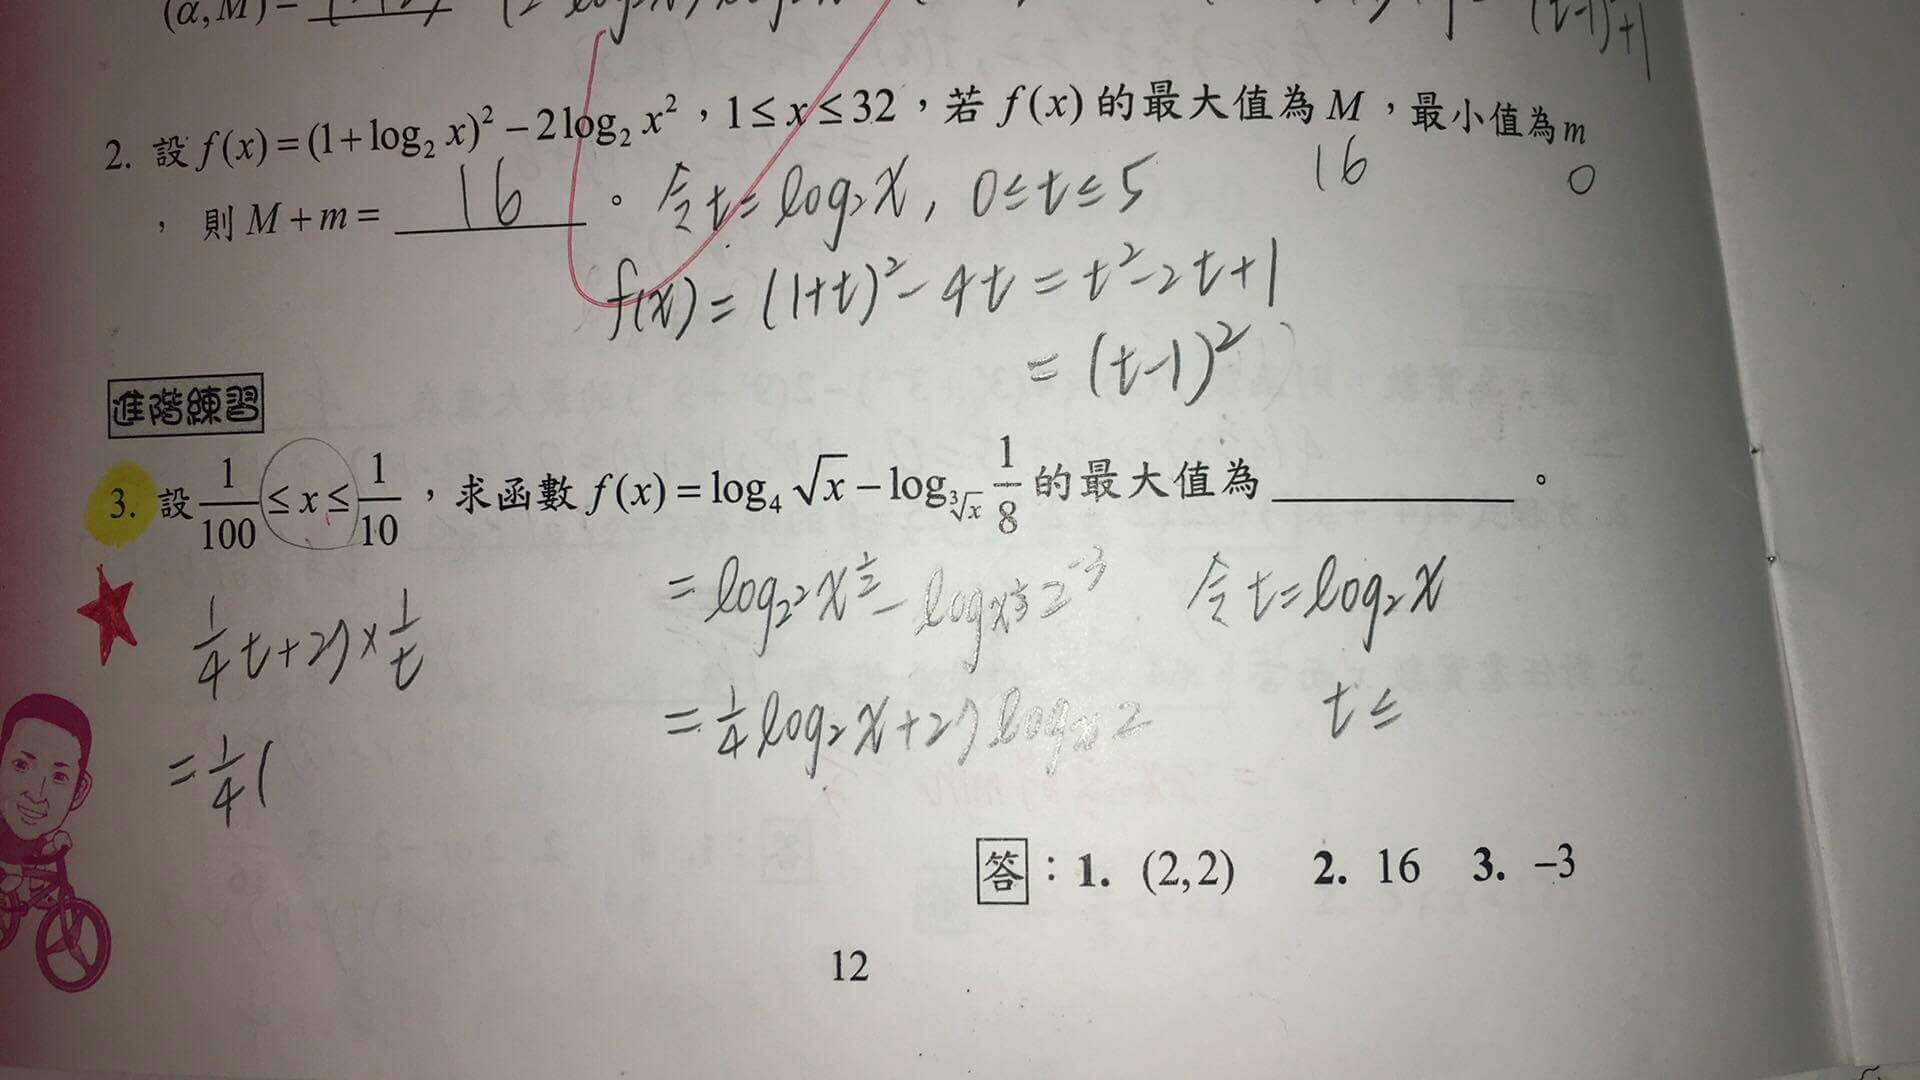 (α, M) =
2. 設 f(x) = (1+log₂ x)² − 2log₂ x² ，1 ≤ x ≤ 32，若 f(x) 的最大值為 M ，最小值為 m
16
0
， 則 M + m = 16 。 令 t = log₂x, 0 ≤ t ≤ 5
f(x) = (1+t)² − 4t = t² − 2t + 1
= (t−1)²
進階練習
3. 設 1/100 ≤ x ≤ 1/10 ，求函數 f(x) = log₄ √x − log_{∛x} 1/8 的最大值為 ________ 。
= log_{2²} x^{1/2} − log_{x^{1/3}} 2^{−3} 令 t = log₂x
1/4 t + 27 × 1/t
= 1/4 log₂x + 27 logₓ2 t ≤
= 1/4 (
答：1. (2,2) 2. 16 3. −3
12